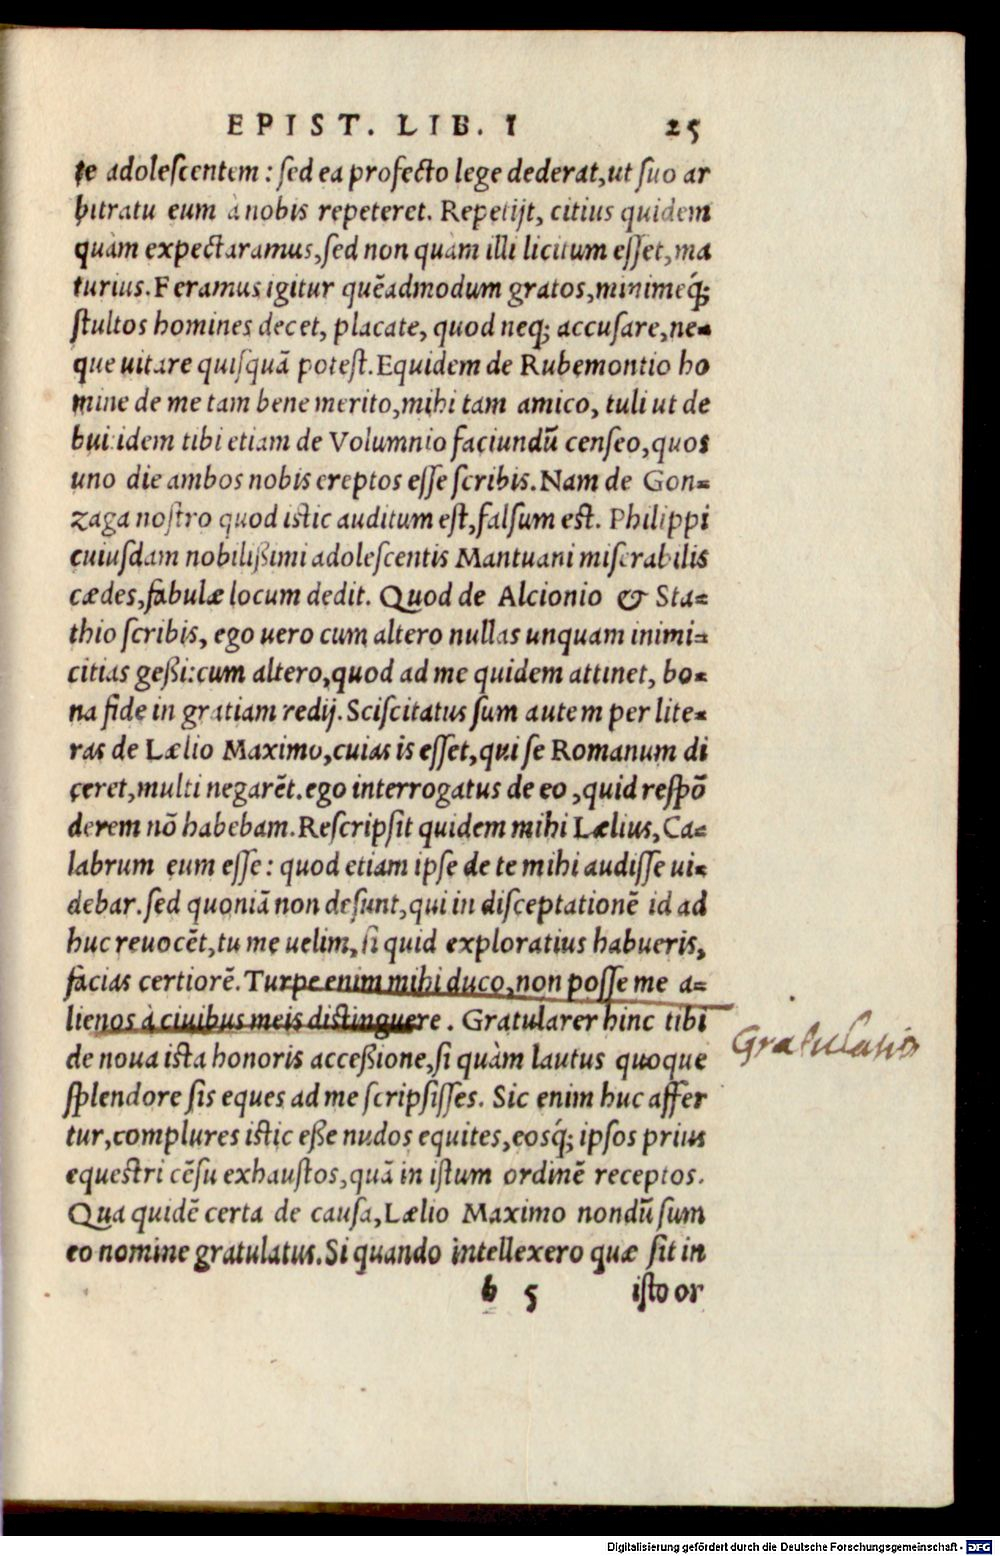 EPIST. LIB. I 25
te adolescentem : sed ea profecto lege dederat,ut suo ar
bitratu eum à nobis repeteret. Repetijt, citius quidem
quàm expectaramus,sed non quàm illi licitum esset,ma
turius.Feramus igitur quẽadmodum gratos,minimeq́;
stultos homines decet, placate, quod neq; accusare,ne-
que uitare quisquã potest.Equidem de Rubemontio ho
mine de me tam bene merito,mihi tam amico, tuli ut de
bui:idem tibi etiam de Volumnio faciundũ censeo,quos
uno die ambos nobis ereptos esse scribis.Nam de Gon-
zaga nostro quod istic auditum est,falsum est. Philippi
cuiusdam nobilißimi adolescentis Mantuani miserabilis
cædes,fabulæ locum dedit. Quod de Alcionio & Sta-
thio scribis, ego uero cum altero nullas unquam inimi-
citias geßi:cum altero,quod ad me quidem attinet, bo-
na fide in gratiam redij.Sciscitatus sum autem per lite-
ras de Lælio Maximo,cuias is esset,qui se Romanum di
ceret,multi negarẽt.ego interrogatus de eo ,quid respõ
derem nõ habebam.Rescripsit quidem mihi Lælius,Ca-
labrum eum esse : quod etiam ipse de te mihi audisse ui-
debar.sed quoniã non desunt,qui in disceptationẽ id ad
huc reuocẽt,tu me uelim,si quid exploratius habueris,
facias certiorẽ.Turpe enim mihi duco,non posse me a-
lienos à ciuibus meis distinguere . Gratularer hinc tibi
Gratulatio
de noua ista honoris acceßione,si quàm lautus quoque
splendore sis eques ad me scripsisses. Sic enim huc affer
tur,complures istic eße nudos equites,eosq́; ipsos prius
equestri cẽsu exhaustos,quã in istum ordinẽ receptos.
Qua quidẽ certa de causa,Lælio Maximo nondũ sum
eo nomine gratulatus.Si quando intellexero quæ sit in
b 5 isto or
Digitalisierung gefördert durch die Deutsche Forschungsgemeinschaft - DFG